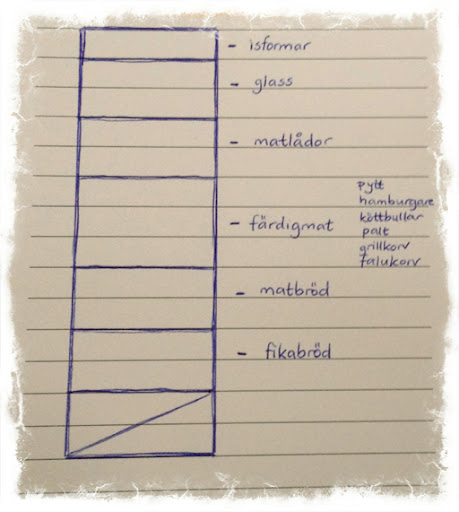 - isformar
- glass
- matlådor
- färdigmat
pytt
hamburgare
köttbullar
palt
grillkorv
falukorv
- matbröd
- fikabröd